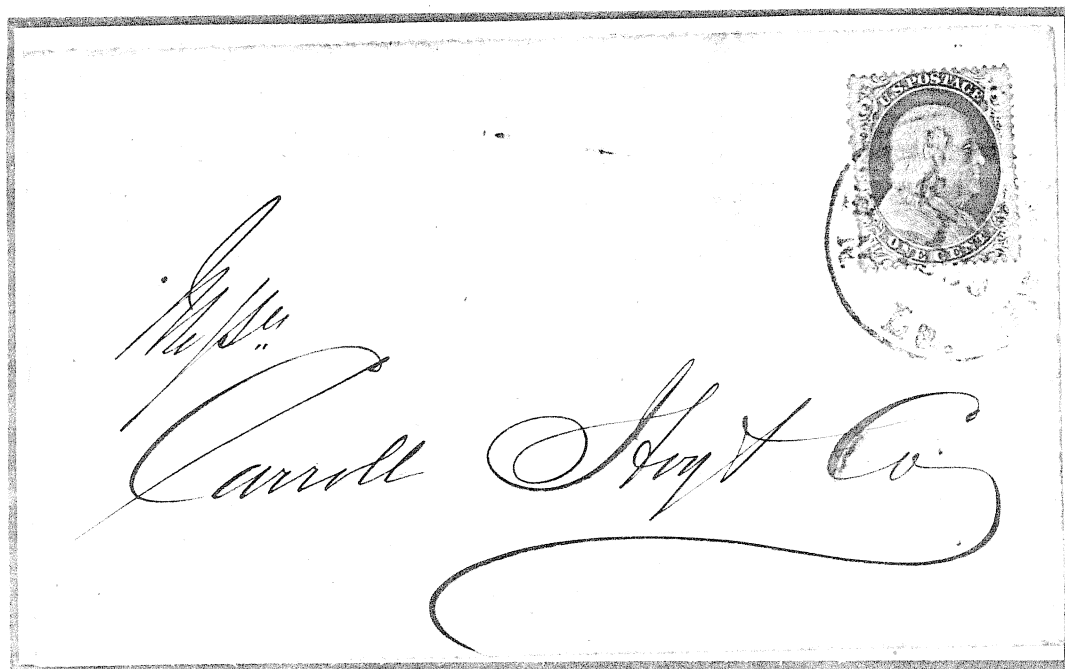 U.S. POSTAGE
ONE CENT
La.
Messrs
Carroll Hoyt Co.